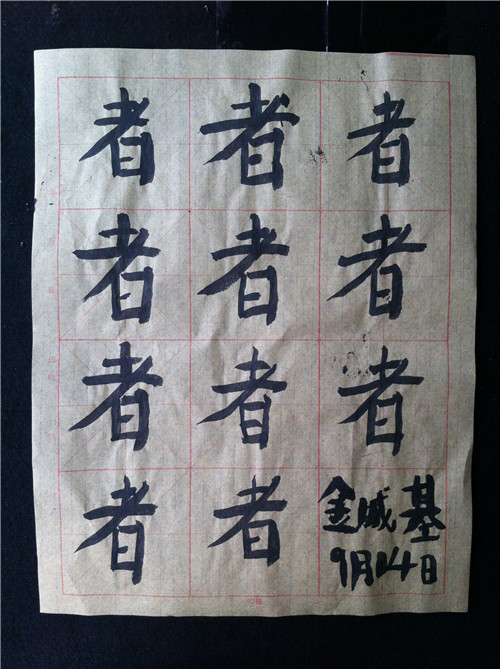 者者者
者者者
者者者
者者金威基
9月14日